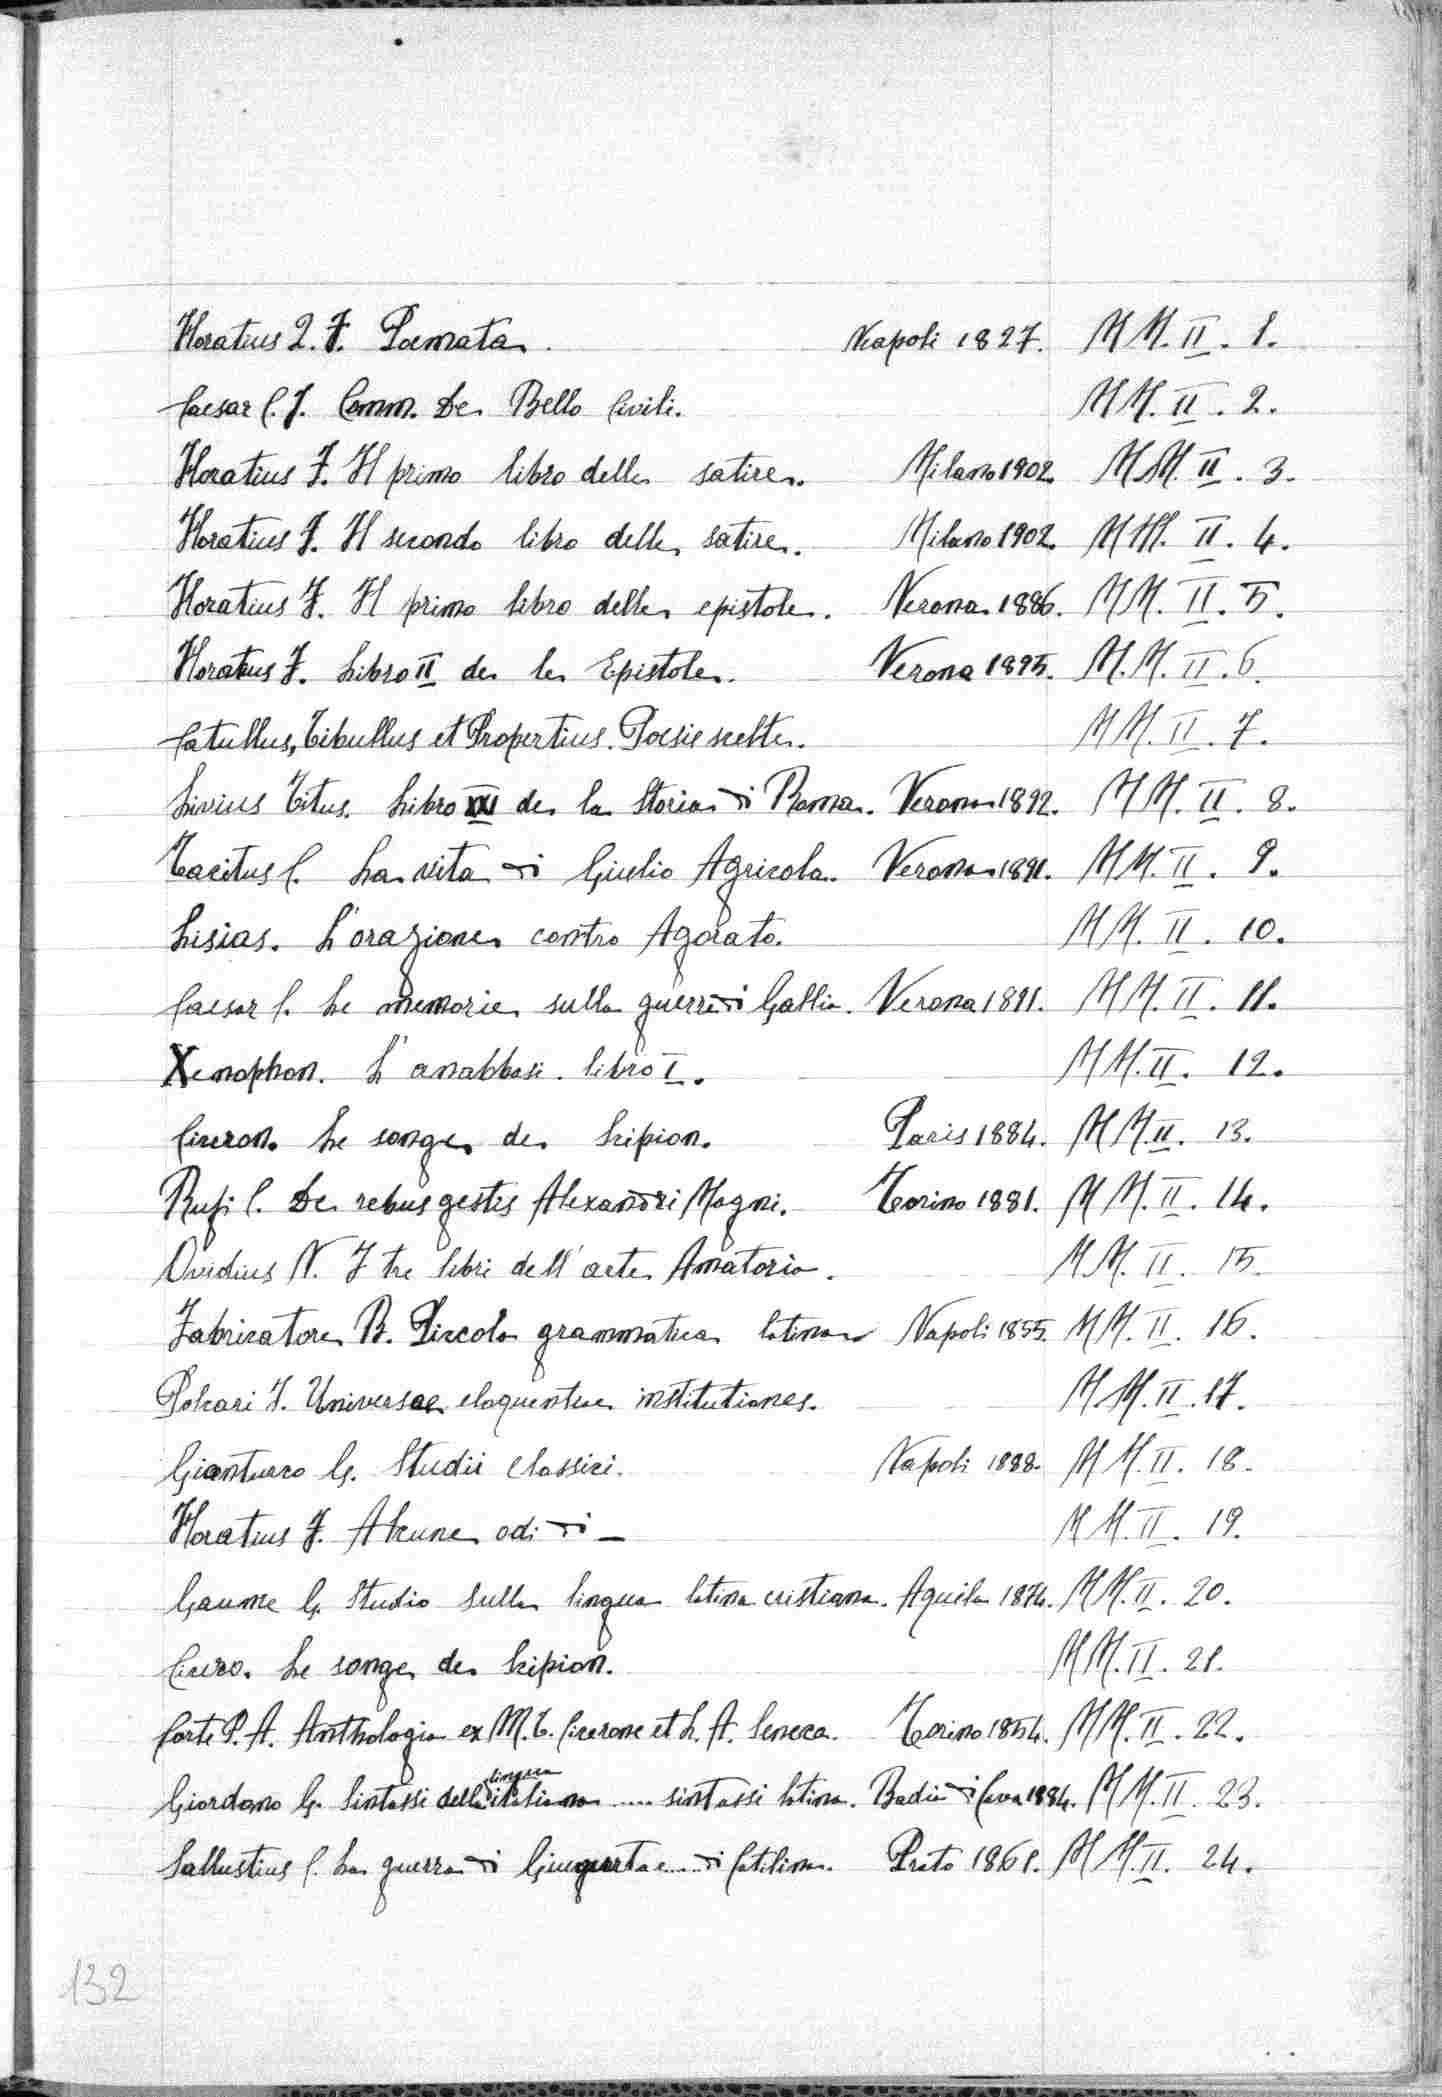 Horatius Q. F. Poemata. Napoli 1827. M M. II. 1.
Caesar C. J. Comm. De Bello Civili. M M. II. 2.
Horatius F. Il primo libro delle satire. Milano 1902. M M. II. 3.
Horatius F. Il secondo libro delle satire. Milano 1902. M M. II. 4.
Horatius F. Il primo libro delle epistole. Verona 1886. M M. II. 5.
Horatius F. Libro II de le Epistole. Verona 1895. M. M. II. 6.
Catullus, Tibullus et Propertius. Poesie scelte. M M. II. 7.
Livius Titus. Libro XXI de la Storia di Roma. Verona 1892. M M. II. 8.
Tacitus C. La vita di Giulio Agricola. Verona 1891. M M. II. 9.
Lisias. L'orazione contro Agorato. M M. II. 10.
Caesar C. Le memorie sulla guerra di Gallia. Verona 1891. M M. II. 11.
Xenophon. L'anabbasi. libro I. M M. II. 12.
Ciceron. Le songe de Scipion. Paris 1884. M M. II. 13.
Rufi C. De rebus gestis Alexandri Magni. Torino 1881. M M. II. 14.
Ovidius N. I tre libri dell'arte Amatoria. M M. II. 15.
Fabricatore B. Piccola grammatica latina Napoli 1855. M M. II. 16.
Polcari J. Universae eloquentiae institutiones. M M. II. 17.
Gianturco G. Studii classici. Napoli 1888. M M. II. 18.
Horatius F. Alcune odi di — M M. II. 19.
Gaume G. Studio sulla lingua latina cristiana. Aquila 1874. M M. II. 20.
Cicero. Le songe de Scipion. M M. II. 21.
Corte P. A. Anthologia ex M. T. Cicerone et L. A. Seneca. Torino 1854. M M. II. 22.
Giordano G. Sintassi della lingua italiana .... sintassi latina. Badia di Cava 1884. M M. II. 23.
Sallustius C. La guerra di Giugurta e .... di Catilina. Prato 1861. M M. II. 24.
132